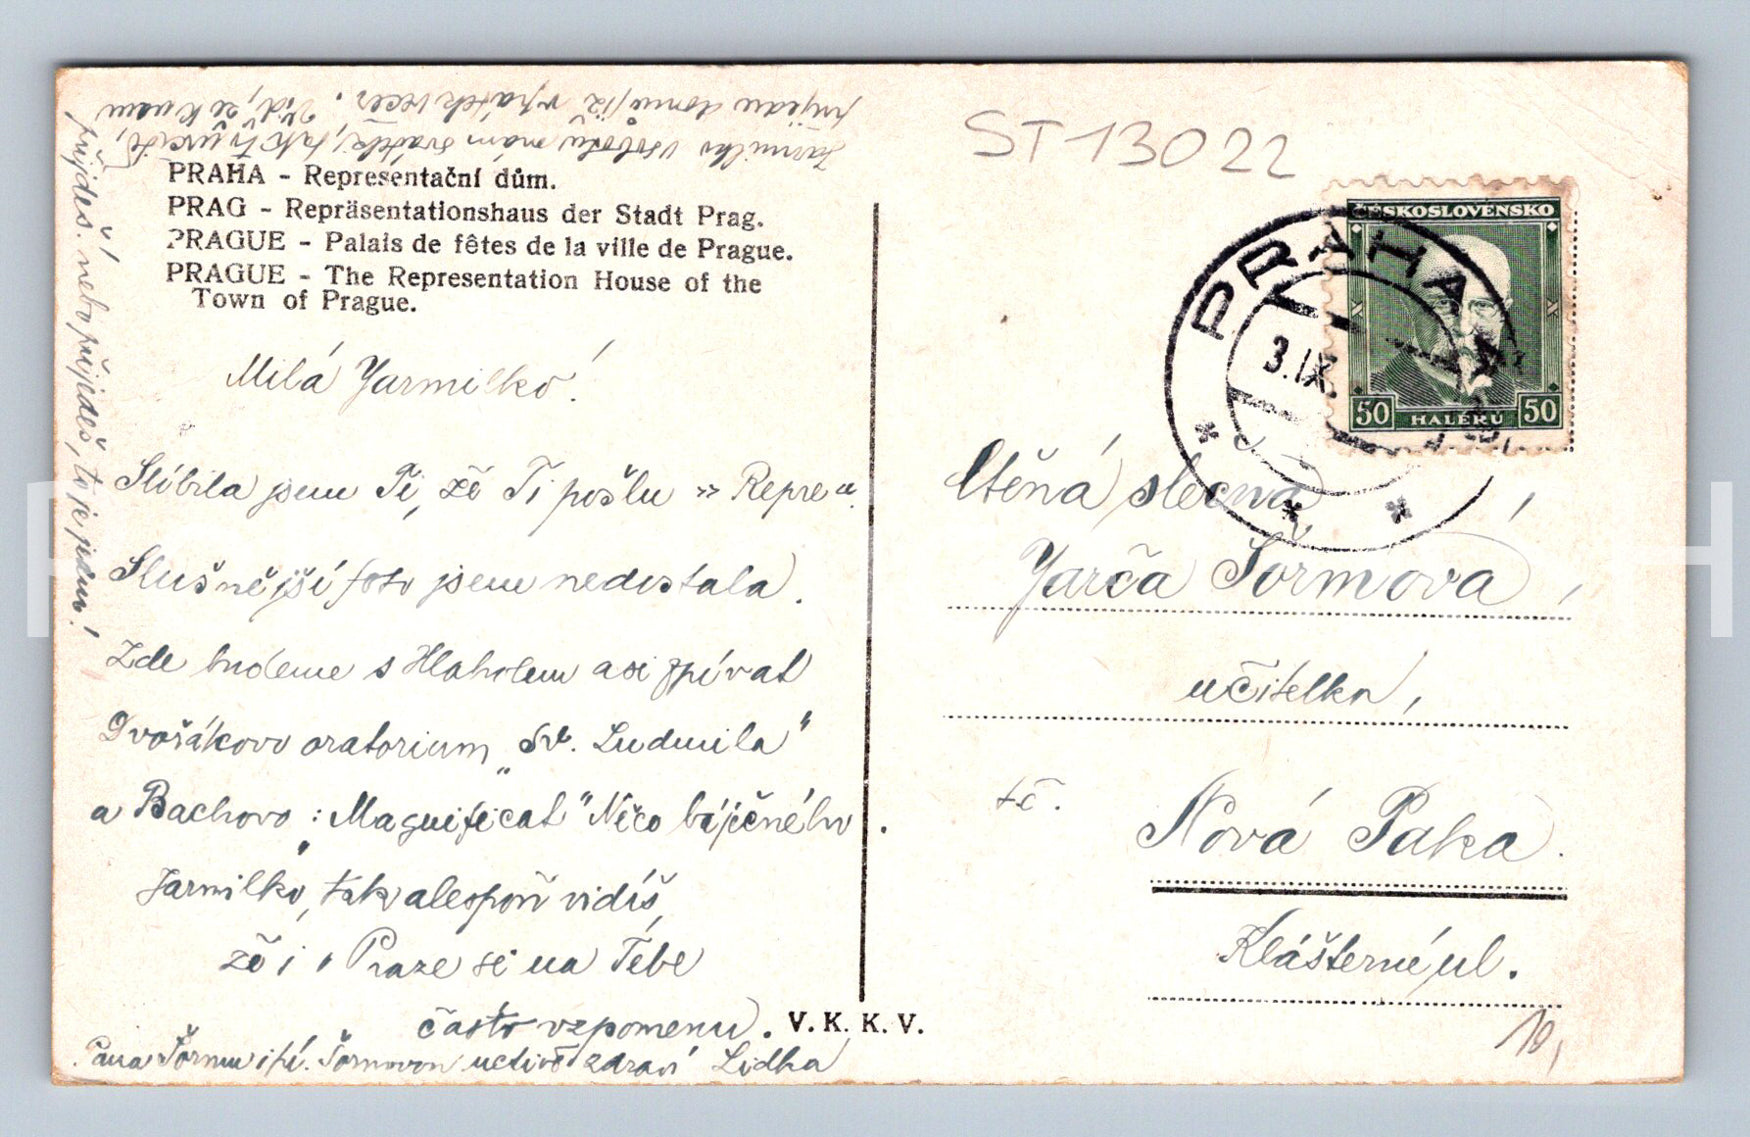 Jarmilko v sobotu mám svátek, tak Tě určitě
přijedu domů již v pátek večer. Viď, že k nám
přijdeš. nebo přijedeš, to je jedno!
PRAHA - Representační dům.
PRAG - Repräsentationshaus der Stadt Prag.
PRAGUE - Palais de fêtes de la ville de Prague.
PRAGUE - The Representation House of the
Town of Prague.
Milá Jarmilko!
Slíbila jsem Ti, že Ti pošlu „Repre“.
Slušnější foto jsem nedostala.
Zde budeme s Hlaholem asi zpívat
Dvořákovo oratorium „Sv. Ludmila“
a Bachovo: „Magnificat“ Něco báječného.
Jarmilko, tak alespoň vidíš,
že i v Praze si na Tebe
často vzpomenu.
Pana Šormu i pí. Šormovou uctivě zdraví Lidka
V. K. K. V.
ST13022
ČESKOSLOVENSKO
50 HALÉŘŮ 50
PRAHA
3.IX.
Ctěná slečna,
Jarča Šormova,
učitelka,
tč.
Nová Paka.
Klášterní ul.
10,